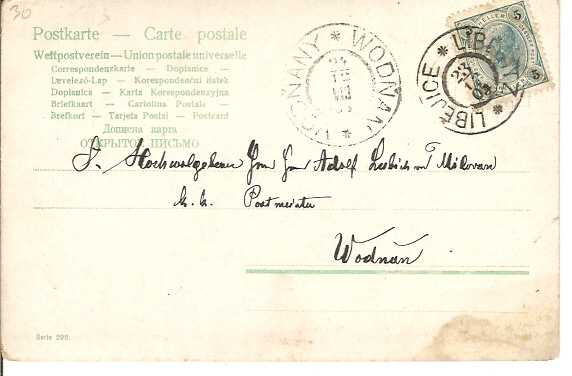 30
Postkarte — Carte postale
Weltpostverein — Union postale universelle
Correspondenzkarte — Dopisnice —
Levelező-Lap — Korespondenční lístek
Dopisnica — Karta Korespondencyjna
Briefkaart — Cartolina Postale —
Brefkort — Tarjeta Postal — Postcard
Дописна карта
ОТКРЫТОЕ ПИСЬМО
VODŇANY * WODŇAN *
24
LIBĚJICE * LIBĚJIC *
23
03
5
HELLER
5
Hochwolgeboren Herrn Herrn Adolf
k. k. Postmeister
Wodnan
Serie 290.